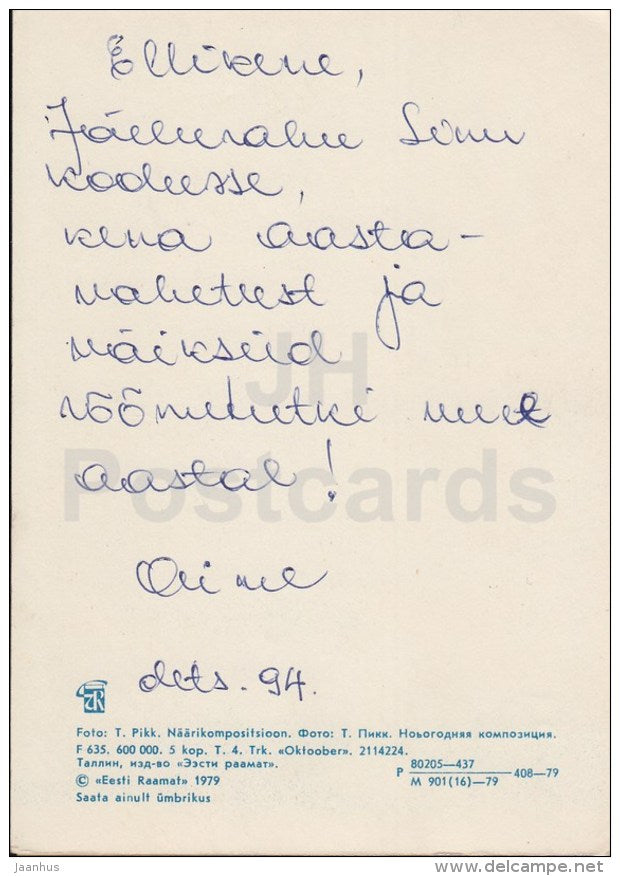 Ellikene,
Jõulurahu Sinu
kodusse,
kena aasta-
vahetust ja
väikseid
rõõmuhetki uuel
aastal!
Aime
dets. 94.
JH
Postcards
TR
Foto: T. Pikk. Näärikompositsioon. Фото: Т. Пикк. Ноьогодняя композиция.
F 635. 600 000. 5 kop. T. 4. Trk. «Oktoober». 2114224.
Таллин, изд-во «Ээсти раамат».
P 80205—437 / M 901(16)—79 408—79
© «Eesti Raamat» 1979
Saata ainult ümbrikus
Jaanhus
www.delcampe.net